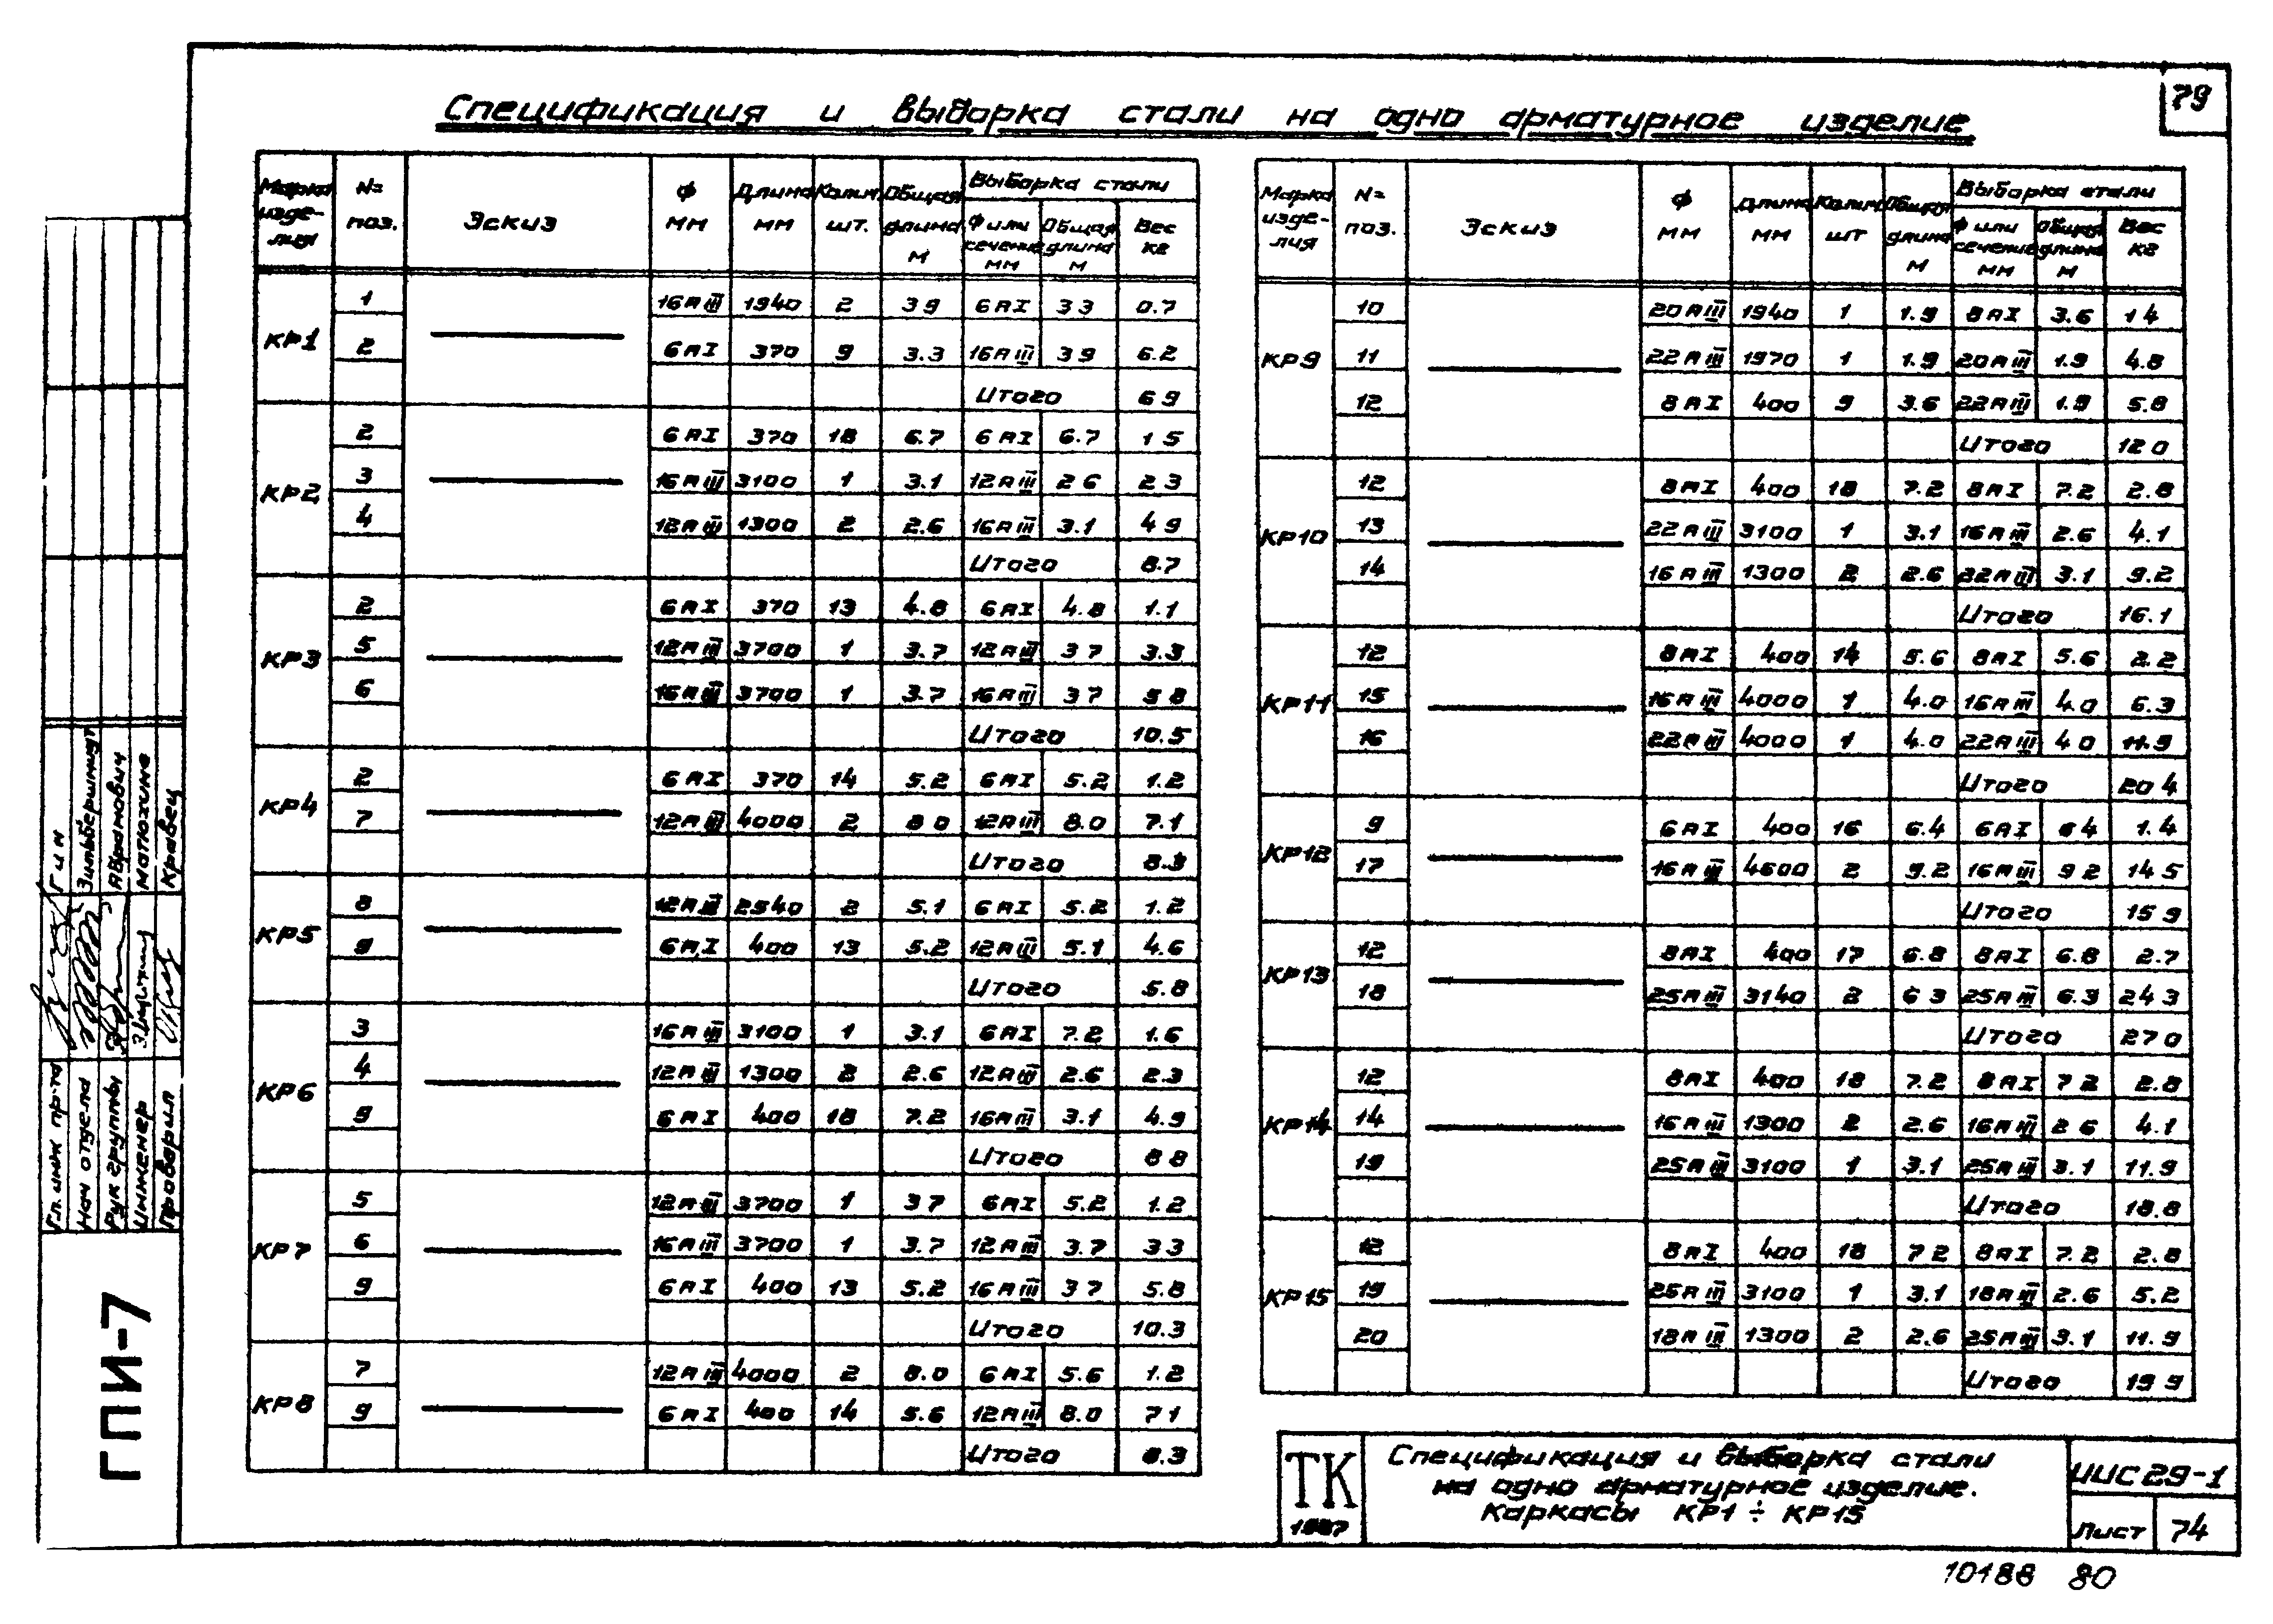 79
Спецификация и выборка стали на одно арматурное изделие
Марка изделия | №= поз. | Эскиз | Ф мм | Длина мм | Колич. шт. | Общая длина м | Выборка стали: Ф или сечение мм | Общая длина м | Вес кг
КР1 | 1 | 16АIII | 1940 | 2 | 3 9 | 6АI | 3 3 | 0.7
2 | 6АI | 370 | 9 | 3.3 | 16АIII | 3 9 | 6.2
Итого 6 9
КР2 | 2 | 6АI | 370 | 18 | 6.7 | 6АI | 6.7 | 1 5
3 | 16АIII | 3100 | 1 | 3.1 | 12АIII | 2 6 | 2 3
4 | 12АIII | 1300 | 2 | 2.6 | 16АIII | 3.1 | 4 9
Итого 8.7
КР3 | 2 | 6АI | 370 | 13 | 4.8 | 6АI | 4.8 | 1.1
5 | 12АIII | 3700 | 1 | 3.7 | 12АIII | 3 7 | 3.3
6 | 16АIII | 3700 | 1 | 3.7 | 16АIII | 3 7 | 5 8
Итого 10.5
КР4 | 2 | 6АI | 370 | 14 | 5.2 | 6АI | 5.2 | 1.2
7 | 12АIII | 4000 | 2 | 8 0 | 12АIII | 8.0 | 7.1
Итого 8.3
КР5 | 8 | 12АIII | 2540 | 2 | 5.1 | 6АI | 5.2 | 1.2
9 | 6АI | 400 | 13 | 5.2 | 12АIII | 5.1 | 4.6
Итого 5.8
КР6 | 3 | 16АIII | 3100 | 1 | 3.1 | 6АI | 7.2 | 1.6
4 | 12АIII | 1300 | 2 | 2.6 | 12АIII | 2.6 | 2.3
9 | 6АI | 400 | 18 | 7.2 | 16АIII | 3.1 | 4.9
Итого 8 8
КР7 | 5 | 12АIII | 3700 | 1 | 3 7 | 6АI | 5.2 | 1.2
6 | 16АIII | 3700 | 1 | 3.7 | 12АIII | 3.7 | 3 3
9 | 6АI | 400 | 13 | 5.2 | 16АIII | 3 7 | 5.8
Итого 10.3
КР8 | 7 | 12АIII | 4000 | 2 | 8.0 | 6АI | 5.6 | 1.2
9 | 6АI | 400 | 14 | 5.6 | 12АIII | 8.0 | 7 1
Итого 8.3
Марка изделия | №= поз. | Эскиз | Ф мм | Длина мм | Колич шт | Общая длина м | Выборка стали: Ф или сечение мм | Общая длина м | Вес кг
КР9 | 10 | 20АIII | 1940 | 1 | 1.9 | 8АI | 3.6 | 1 4
11 | 22АIII | 1970 | 1 | 1.9 | 20АIII | 1.9 | 4.8
12 | 8АI | 400 | 9 | 3.6 | 22АIII | 1.9 | 5.8
Итого 12 0
КР10 | 12 | 8АI | 400 | 18 | 7.2 | 8АI | 7.2 | 2.8
13 | 22АIII | 3100 | 1 | 3.1 | 16АIII | 2.6 | 4.1
14 | 16АIII | 1300 | 2 | 2.6 | 22АIII | 3.1 | 9.2
Итого 16.1
КР11 | 12 | 8АI | 400 | 14 | 5.6 | 8АI | 5.6 | 2.2
15 | 16АIII | 4000 | 1 | 4.0 | 16АIII | 4.0 | 6.3
16 | 22АIII | 4000 | 1 | 4.0 | 22АIII | 4 0 | 11.9
Итого 20 4
КР12 | 9 | 6АI | 400 | 16 | 6.4 | 6АI | 6 4 | 1.4
17 | 16АIII | 4600 | 2 | 9.2 | 16АIII | 9 2 | 14 5
Итого 15 9
КР13 | 12 | 8АI | 400 | 17 | 6.8 | 8АI | 6.8 | 2.7
18 | 25АIII | 3140 | 2 | 6 3 | 25АIII | 6.3 | 24 3
Итого 27 0
КР14 | 12 | 8АI | 400 | 18 | 7.2 | 8АI | 7 2 | 2.8
14 | 16АIII | 1300 | 2 | 2.6 | 16АIII | 2 6 | 4.1
19 | 25АIII | 3100 | 1 | 3.1 | 25АIII | 3.1 | 11.9
Итого 18.8
КР15 | 12 | 8АI | 400 | 18 | 7 2 | 8АI | 7.2 | 2.8
19 | 25АIII | 3100 | 1 | 3.1 | 18АIII | 2.6 | 5.2
20 | 18АIII | 1300 | 2 | 2.6 | 25АIII | 3.1 | 11.9
Итого 19 9
Гл. инж пр-та Гин
Нач отдела Зильбершмидт
Рук группы Абрамович
Инженер Матюхина
Проверил Кравец
ГПИ-7
ТК
1967
Спецификация и выборка стали
на одно арматурное изделие.
Каркасы КР1 ÷ КР15
ИИС 29-1
Лист 74
10188 80